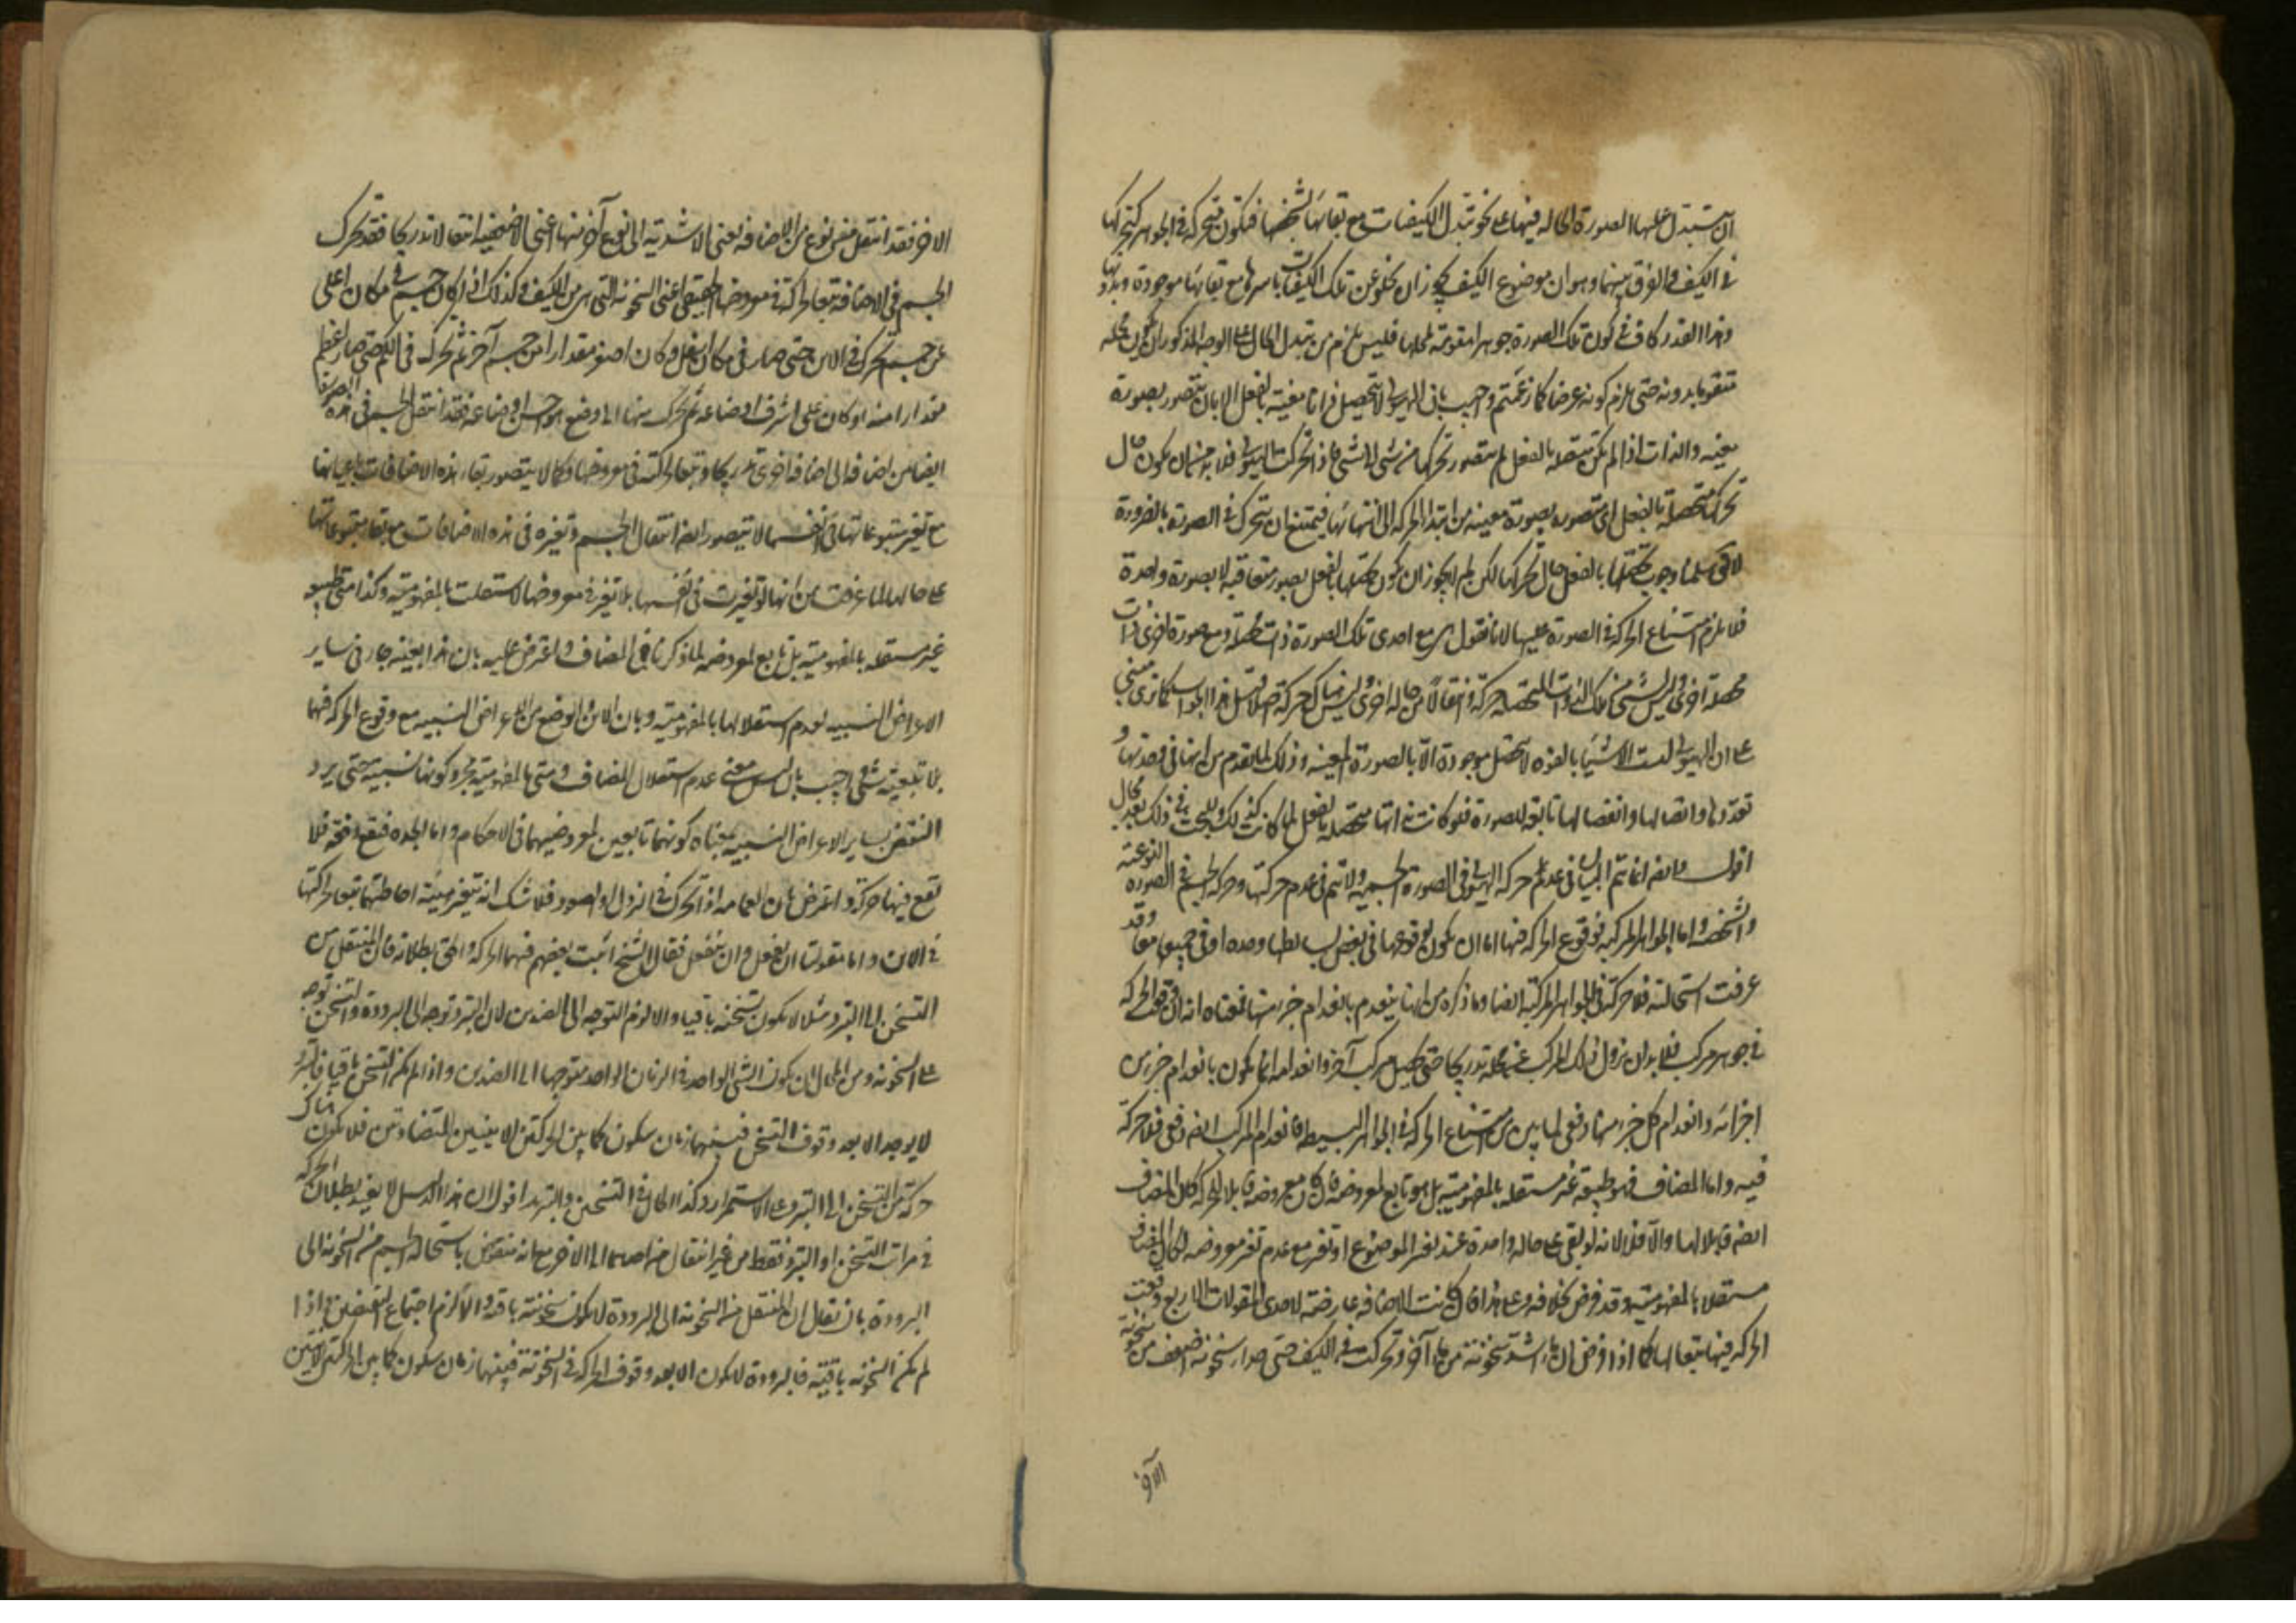 ان تتبدل عليها الصورة الحالة فيها على نحو تبدل الكيفيات مع بقائها بشخصها فتكون متحركة في الجواهر كتحركها
في الكيف والفرق بينهما وهو ان موضوع الكيف يجوز ان يخلو عن تلك الكيفيات باسرها مع بقائها موجودة وبدونها
وهذا القدر كاف في كون تلك الصورة جوهرا مقومة لمحلها فليس يلزم من تبدل الحال على الوجه المذكور ان يكون محله
متقوما بدونه حتى يلزم كونه عرضا كما زعمتم واجيب بان الهيولى لا تتحصل ذاتا معينة بالفعل الا بان تتصور بصورة
معينه والذات اذا لم تكن متحصلة بالفعل لم يتصور تحركها من شئ الى شئ فاذا تحركت الهيولى فلا بد من ان يكون حال
تحركها متحصلة بالفعل اى متصورة بصورة معينه من ابتداء الحركه الى انتهائها فيمتنع ان تتحرك في الصورة بالضرورة
لا يقال سلمنا وجوب تحصلها بالفعل حال تحركها لكن لم لا يجوز ان يكون تحصلها بالفعل بصور متعاقبة لا بصورة واحدة
فلا يلزم امتناع الحركة في الصورة عليها لانا نقول هي مع احدى تلك الصورة ذات متحصلة ومع صورة اخرى ذات
محصلة اخرى وليس شئ من تلك الذوات المتحصلة حركة وانتقالا من حالة اخرى فليس هناك حركة اصلا قيل هذا الجواب كما ترى مبني
على ان الهيولى ليست الا شيئا بالقوه لا تتحصل موجودة الا بالصورة المعينه وذلك لما تقدم من انها في وحدتها و
تعددها واتصالها وانفصالها تابعه للصورة فلو كانت ذاتها متحصلة بالفعل لما كانت كذلك وللبحث في ذلك بعد مجال
اقول وايضا انما يتم البيان في عدم حركه الهيولى في الصورة الجسمية ولا يتم في عدم حركتها وحركه الجسم في الصوره النوعيه
والشخصية واما الجواهر المركبه فوقوع الحركه فيها اما ان يكون بوقوعها في بعض بسائطها وحده او في جميعها معا وقد
عرفت استحالته فلا حركة في الجواهر المركبة ايضا وما ذكره من انها ينعدم بانعدام جزء منها فمعناه انه ان وقع الحركه
في جوهر مركب فلا بد ان يزول ذلك المركب عن محله تدريجا حتى يحصل مركب آخر وانعدامه انما يكون بانعدام جزء من
اجزائه وانعدام كل جزء منها دفعى لما بين من امتناع الحركه في الجواهر البسيطه فانعدام المركب ايضا دفعى فلا حركة
فيه واما المضاف فهو طبيعة غير مستقله بالمفهومية بل هو تابع لمعروضه فان كان معروضه قابلا للحركة كان المضاف
ايضا قابلا لها والا فلا لانه لو بقى على حاله واحدة عند تغير الموضوع او تغير مع عدم تغير معروضه لكان المضاف
مستقلا بالمفهومية وقد فرض بخلافه وعلى هذا فان كانت الاضافه عارضة لاحدى المقولات الاربع وقعت
الحركه فيها تبعا لها كما اذا فرض ان ماء اشد سخونة من ماء آخر وتحركت في الكيف حتى صار سخونته اضعف من سخونة
الآخر
الاخر فقد انتقل من نوع من الاضافه يعنى الاشدية الى نوع آخر منها اعنى الاضعفية انتقالا تدريجا فقد تحرك
الجسم في الاضافه تبعا لحركته في معروضها الحقيقى اعنى السخونه التى هى من الكيف وكذلك اذا كان جسم في مكان اعلى
من جسم تحرك في الاين حتى صار في مكان اسفل وكان اصغر مقدارا من جسم آخر ثم تحرك في الكم حتى صار اعظم
مقدارا منه او كان على اشرف اوضاعه ثم تحرك منها الى وضع هو اخس اوضاعه فقد انتقل الجسم في هذه الصور
ايضا من اضافه الى اضافه اخرى تدريجا وتبعا لحركته في معروضها وكما لا يتصور بقاء هذه الاضافات باعيانها
مع تغير متبوعاتها في انفسها لا يتصور ايضا انتقال الجسم وتغيره في هذه الاضافات مع بقاء متبوعاتها
على حالها لما عرفت من انها لو تغيرت في انفسها بلا تغير في معروضها لاستقلت بالمفهومية وكذا متى طبيعه
غير مستقله بالمفهومية بل تابع لمعروضه لما ذكرنا في المضاف واعترض عليه بان هذا بعينه جار في ساير
الاعراض النسبيه لعدم استقلالها بالمفهومية وبان الاين والوضع من الاعراض النسبيه مع وقوع الحركه فيهما
بلا تبعية شئ واجيب بان ليس معنى عدم استقلال المضاف ومتى بالمفهومية مجرد كونها نسبية حتى يرد
النقض بساير الاعراض النسبيه بل معناه كونهما تابعين لمعروضيهما في الاحكام واما الجده فيقع دفعة فلا
تقع فيها حركة واعترض بان العمامه اذا تحرك في النزول او الصعود فلا شك انه يتغير هيئة احاطتها تبعا لحركتها
في الاين واما مقولتا ان يفعل وان ينفعل فقال الشيخ اثبت بعضهم فيهما الحركه والحق بطلانه فان المنتقل من
التسخن الى التبرد مثلا لا يكون تسخنه باقيا والا لزم التوجه الى الضدين لان التبرد توجه الى البرودة والتسخن توجه
على السخونه ومن المحال ان يكون الشئ الواحد في الزمان الواحد متوجها الى الضدين واذا لم يكن التسخن باقيا فالتبرد
لا يوجد الا بعد وقوف التسخن فبينهما زمان سكون كما بين الحركتين الاينيين المتضادتين فلا يكون هناك
حركة من التسخن الى التبرد على الاستمرار وكذا الحال في التسخين والتبريد اقول ان هذا الدليل لا يفيد بطلان الحركه
في مراتب التسخن او التبرد فقط من غير انتقال من احدهما الى الاخر مع انه منقوض باستحالة الجسم من السخونه الى
البرودة بان يقال ان المنتقل من السخونه الى البرودة لا يكون سخونته باقيه والا لزم اجتماع النقيضين واذا
لم يكن السخونه باقية فالبرودة لا يكون الا بعد وقوف الحركه في السخونة فبينهما زمان سكون كما بين الحركتين الاينيين